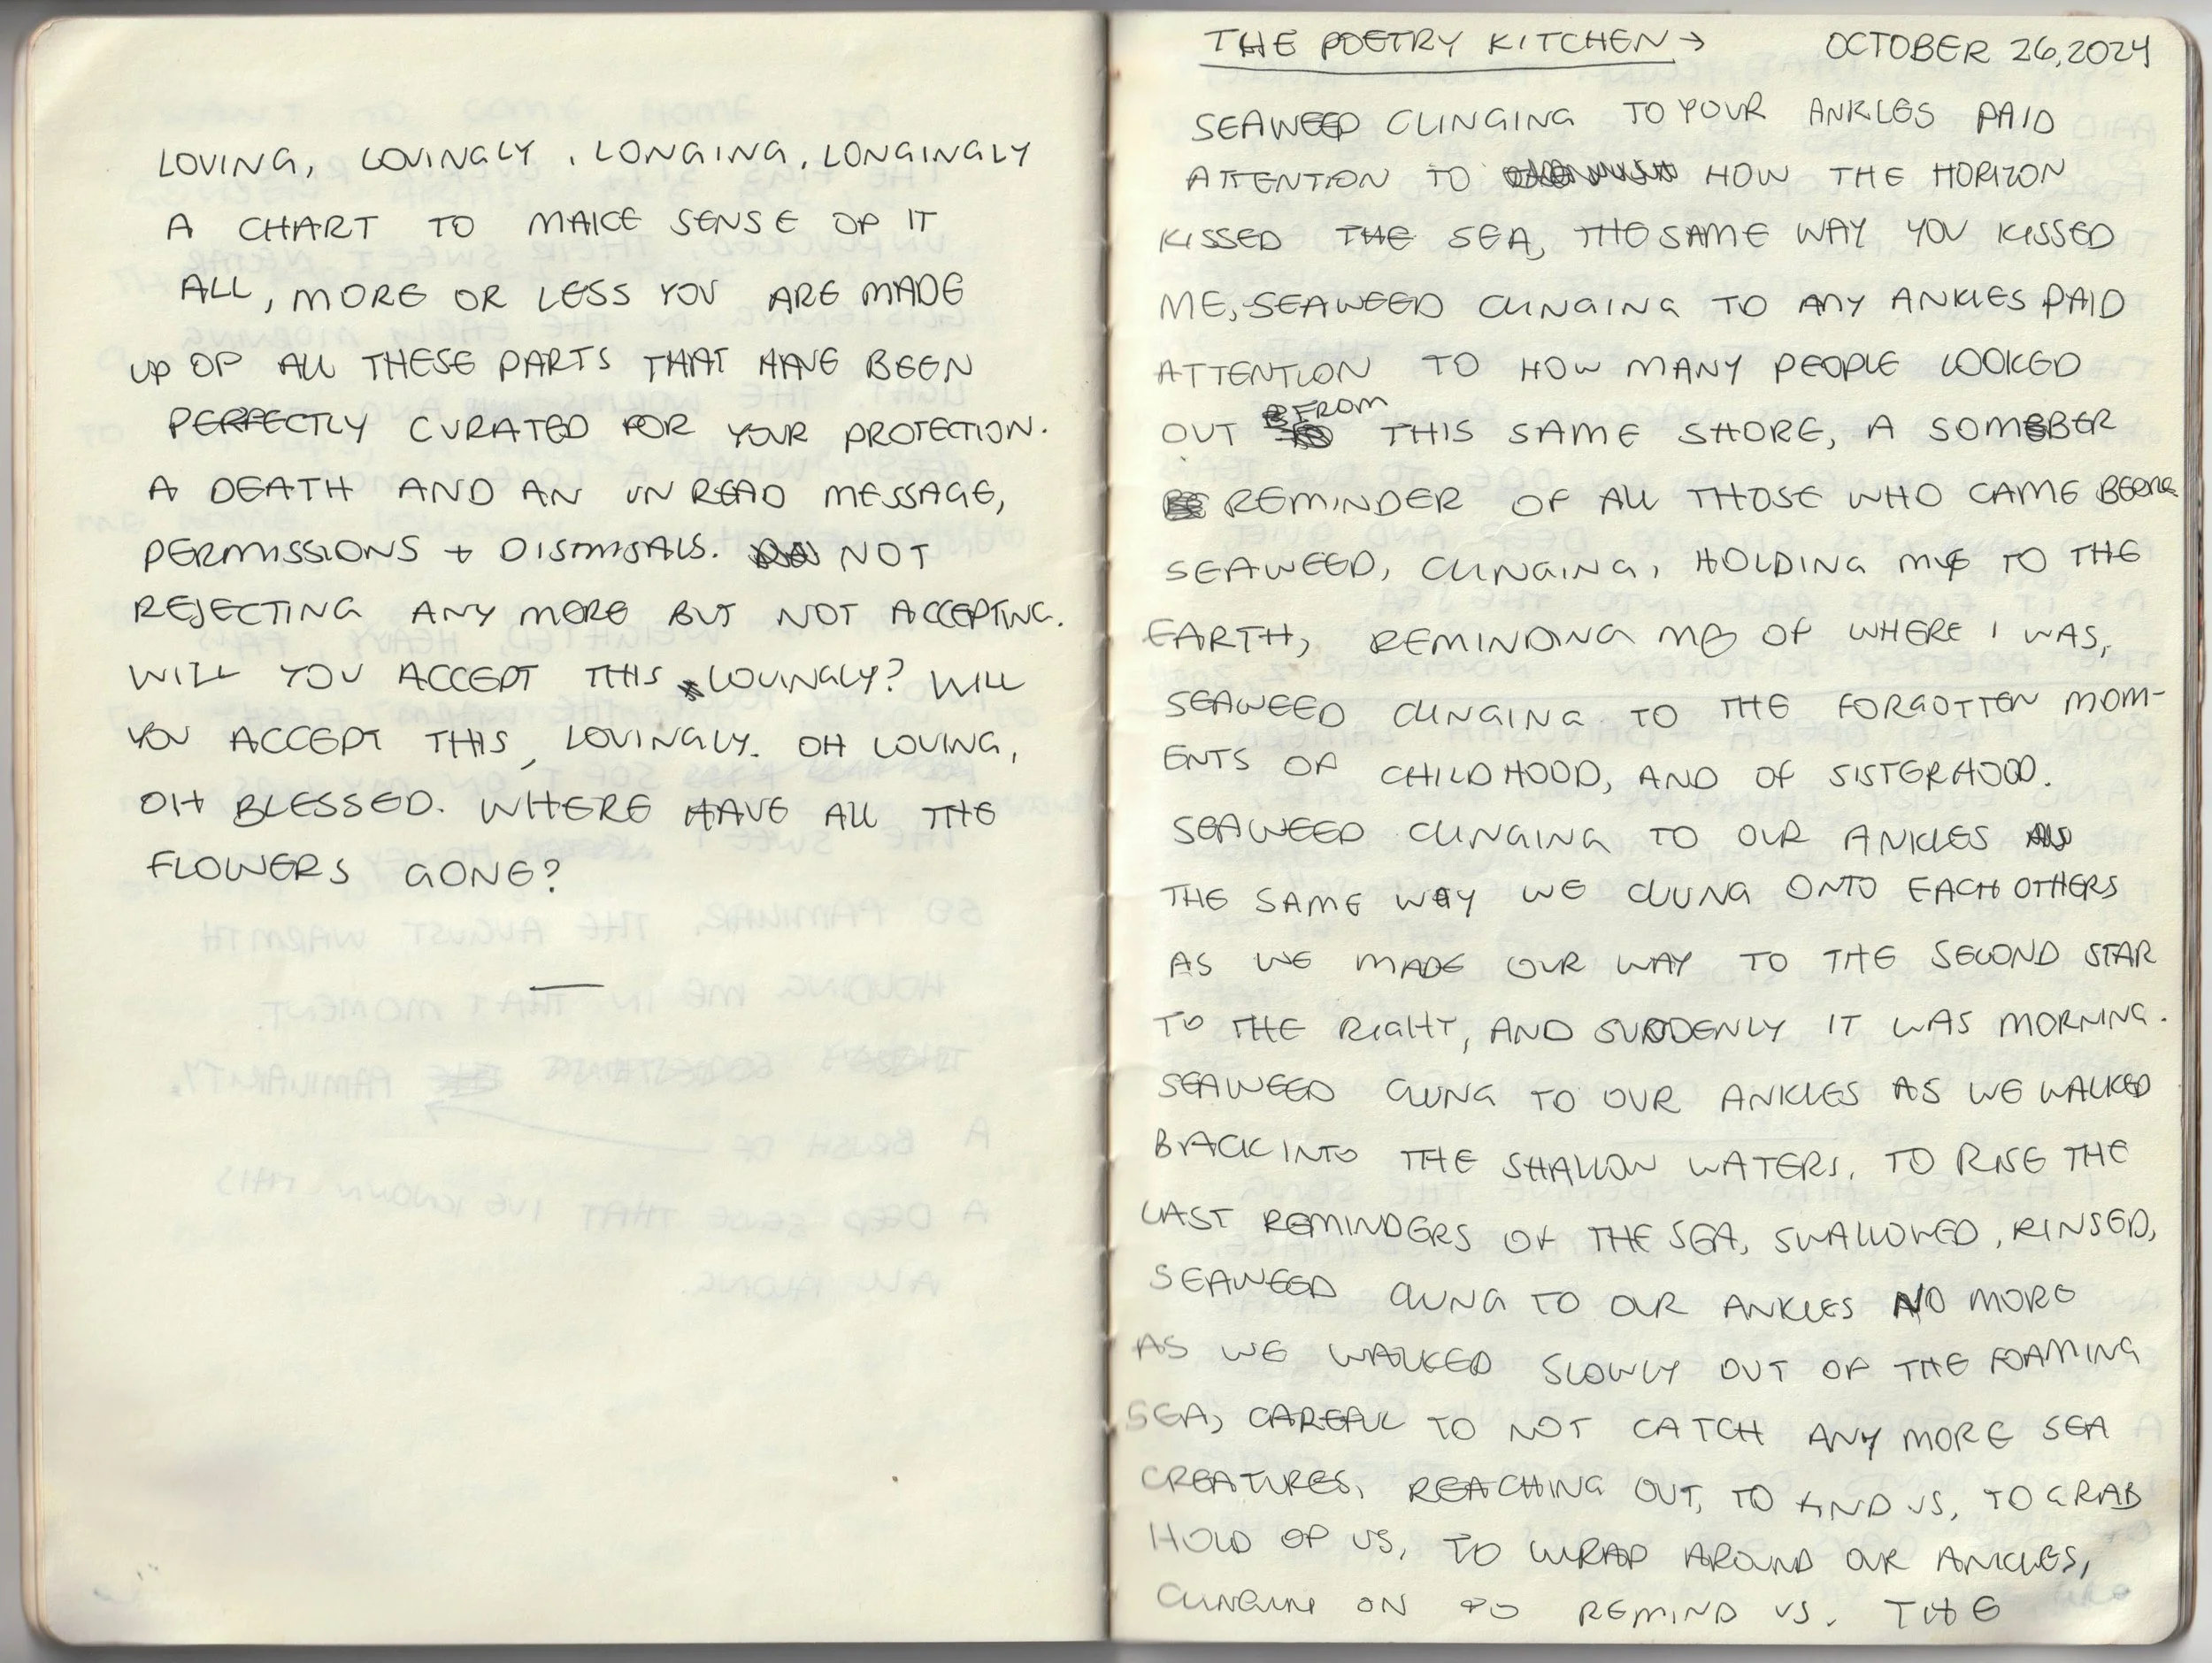 LOVING, LOVINGLY, LONGING, LONGINGLY
A CHART TO MAKE SENSE OF IT
ALL, MORE OR LESS YOU ARE MADE
UP OF ALL THESE PARTS THAT HAVE BEEN
PERFECTLY CURATED FOR YOUR PROTECTION.
A DEATH AND AN UNREAD MESSAGE,
PERMISSIONS + DISMISSALS. NOT
REJECTING ANY MORE BUT NOT ACCEPTING.
WILL YOU ACCEPT THIS LOVINGLY? WILL
YOU ACCEPT THIS, LOVINGLY. OH LOVING,
OH BLESSED. WHERE HAVE ALL THE
FLOWERS GONE?
THE POETRY KITCHEN → OCTOBER 26, 2024
SEAWEED CLINGING TO YOUR ANKLES PAID
ATTENTION TO HOW THE HORIZON
KISSED THE SEA, THE SAME WAY YOU KISSED
ME, SEAWEED CLINGING TO MY ANKLES PAID
ATTENTION TO HOW MANY PEOPLE LOOKED
OUT FROM THIS SAME SHORE, A SOMBER
REMINDER OF ALL THOSE WHO CAME BEFORE
SEAWEED, CLINGING, HOLDING ME TO THE
EARTH, REMINDING ME OF WHERE I WAS,
SEAWEED CLINGING TO THE FORGOTTEN MOM-
ENTS OF CHILDHOOD, AND OF SISTERHOOD.
SEAWEED CLINGING TO OUR ANKLES
THE SAME WAY WE CLUNG ONTO EACH OTHERS
AS WE MADE OUR WAY TO THE SECOND STAR
TO THE RIGHT, AND SUDDENLY IT WAS MORNING.
SEAWEED CLUNG TO OUR ANKLES AS WE WALKED
BACK INTO THE SHALLOW WATERS, TO RISE THE
LAST REMINDERS OF THE SEA, SWALLOWED, RINSED,
SEAWEED CLUNG TO OUR ANKLES NO MORE
AS WE WALKED SLOWLY OUT OF THE FOAMING
SEA, CAREFUL TO NOT CATCH ANY MORE SEA
CREATURES, REACHING OUT, TO FIND US, TO GRAB
HOLD OF US, TO WRAP AROUND OUR ANKLES,
CLINGING ON TO REMIND US. THE